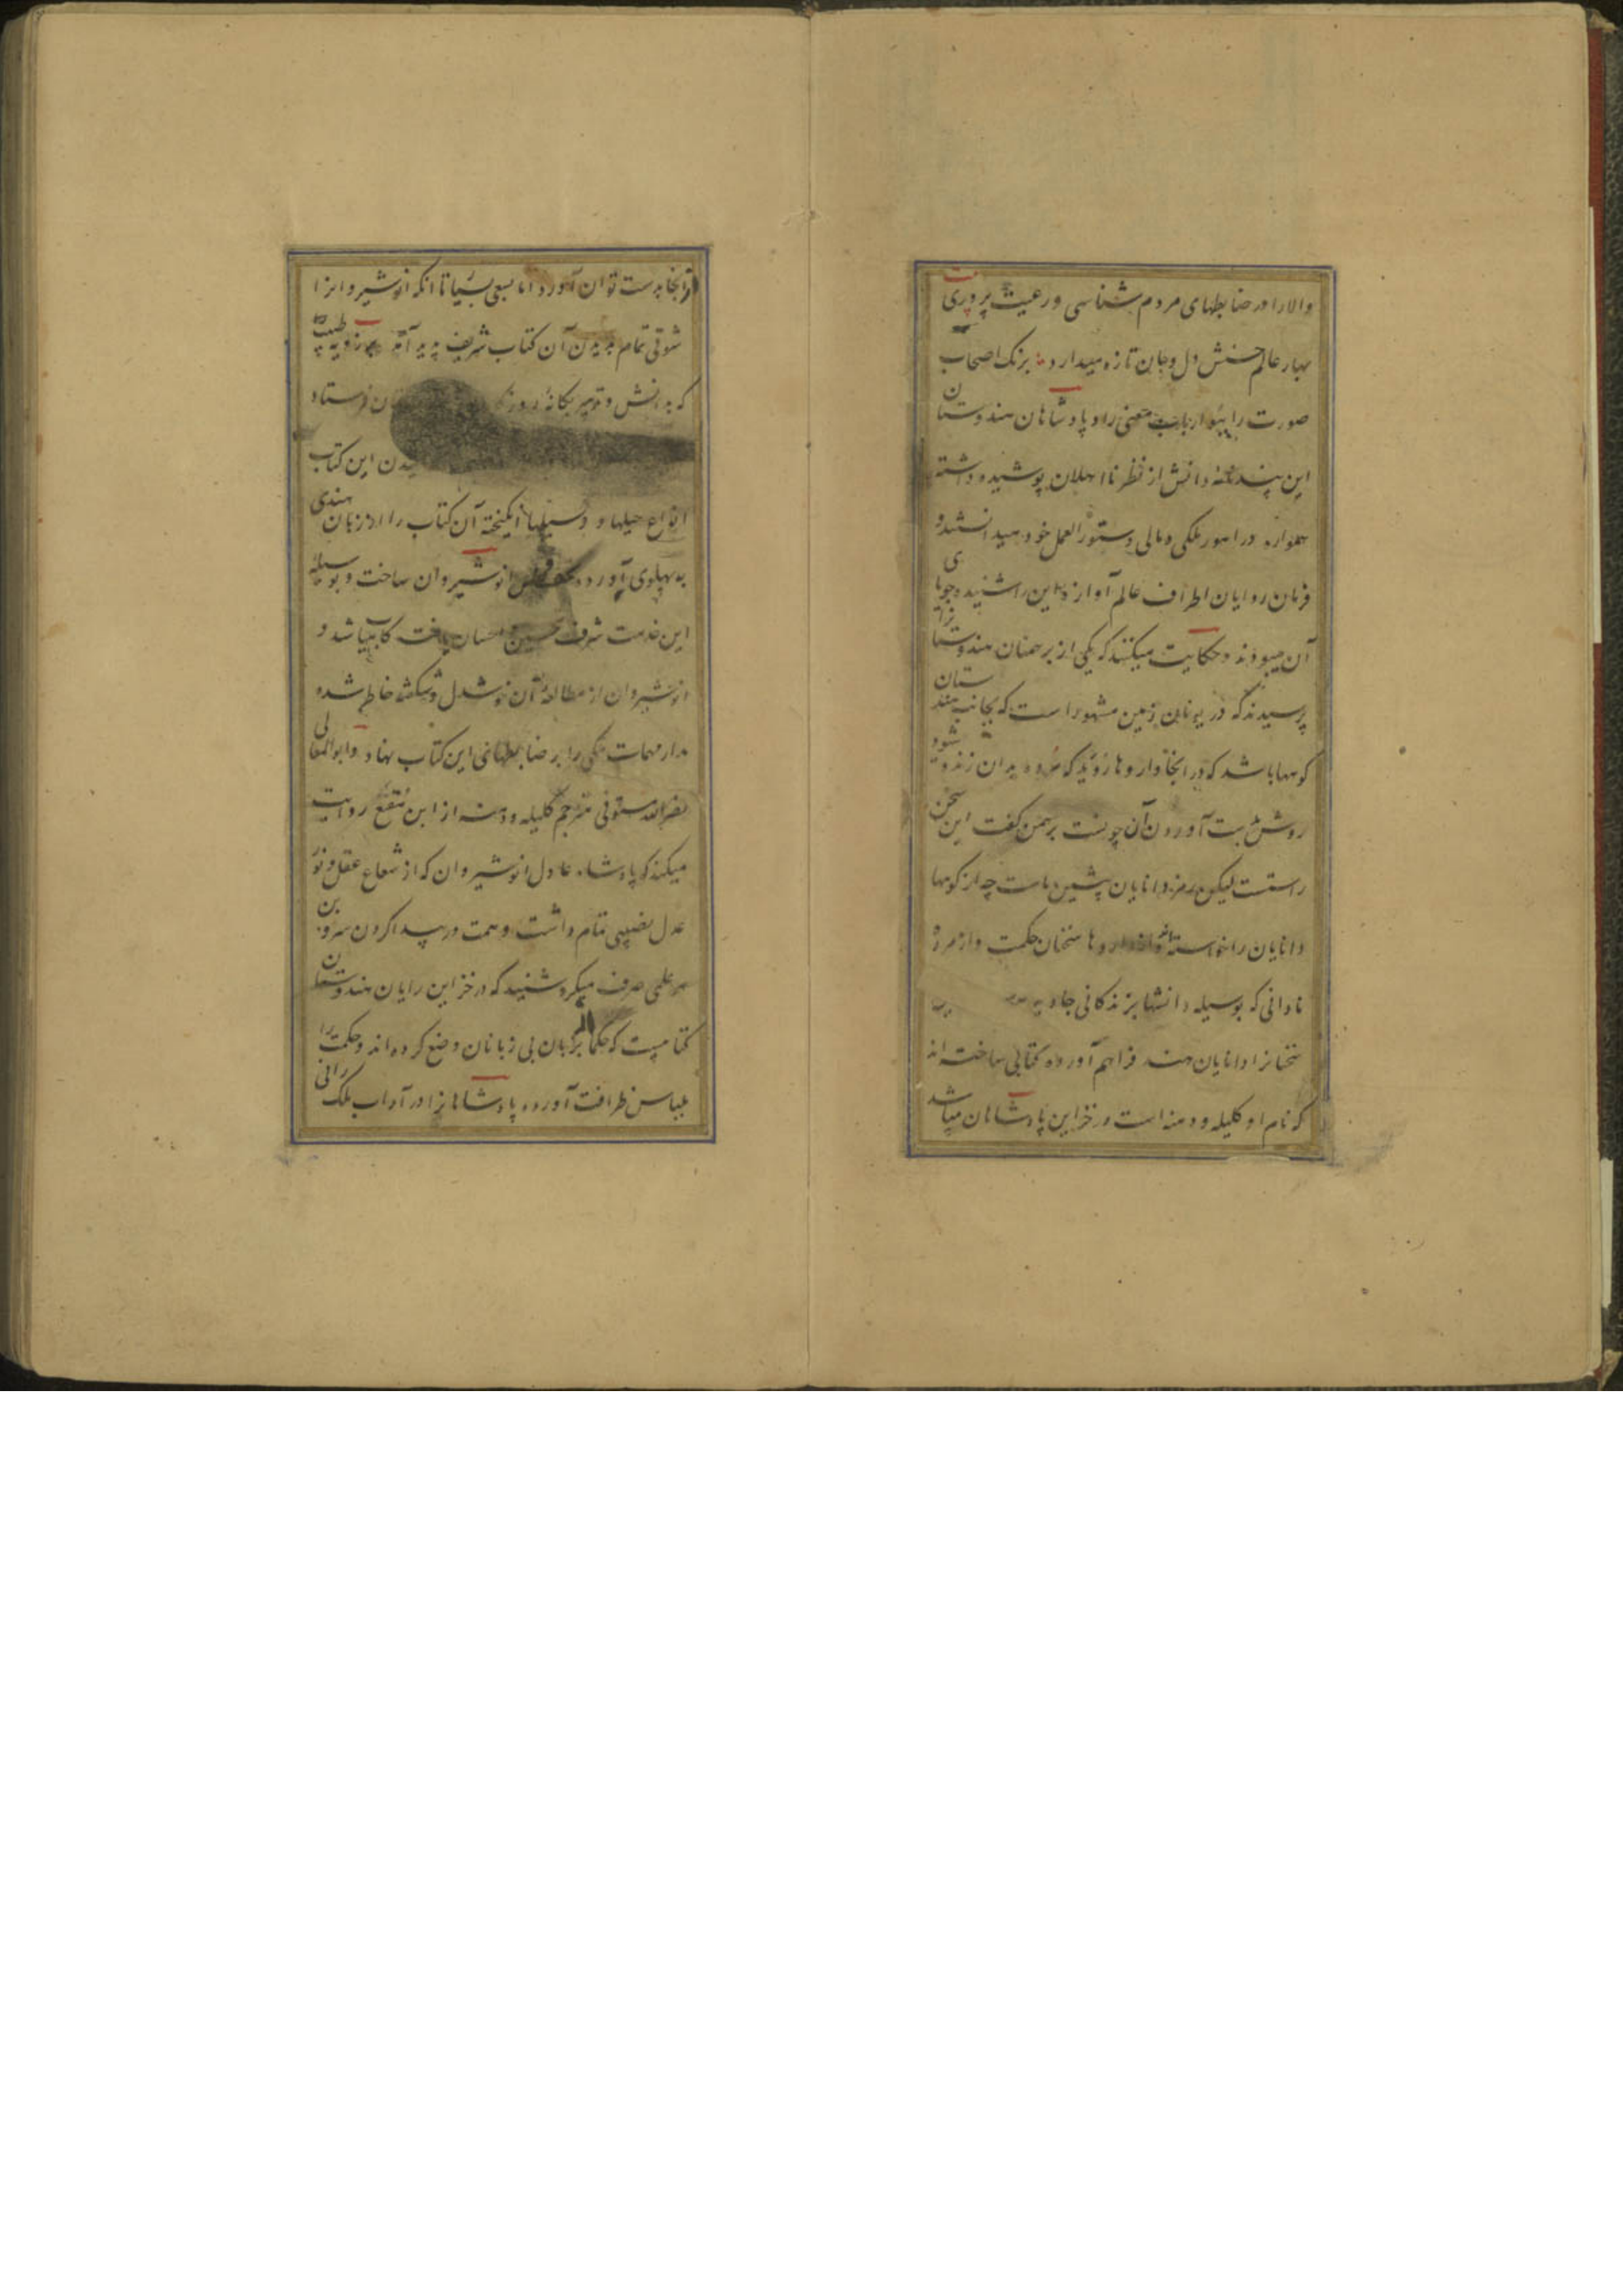 والا را در ضابطهای مردم شناسی و رعیت پروری
بهار عالم حسنش دل و جان تازه میدارد برنگ اصحاب
صورت را ببو ارباب معنی را و پادشاهان هندوستان
این پند نامهٔ دانش از نظر نا اهلان پوشیده داشته
همواره در امور ملکی و مالی دستور العمل خود میدانستند و
فرمان روایان اطراف عالم آوازه این را شنیده جویای
آن میبودند و حکایت میکنند که یکی از برهمنان هندوستانرا
پرسیدند که در یونان زمین مشهور است که بجانب هندوستان
کوهها باشد که در انجا داروها روید که مرده بدان زنده شود
روش بدست آوردن آن چونست برهمن گفت این سخن
راستست لیکن رمز دانایان پیشین است چه از کوهها
دانایان را خواسته اند و از داروها سخنان حکمت و از مرده
نادانی که بوسیله دانشها بزندگانی جاوید
سخنانرا دانایان هند فراهم آورده کتابی ساخته اند
که نام او کلیله و دمنه است در خزاین پادشاهان میباشد
از انجا بدست توان آورد اما بسعی بسیار تا انکه انوشیروانرا
شوقی تمام بدیدن آن کتاب شریف پدید آمد برزویه طبیب
که بدانش و تدبیر یگانهٔ فرستاد
این کتاب
انواع حیلها و وسیلها انگیخته آن کتاب را از زبان هندی
به پهلوی آورده انوشیروان ساخت و بوسیلهٔ
این خدمت شرف تحسین و احسان یافت کامیاب شد و
انوشیروان از مطالعهٔ آن خوشدل و شگفته خاطر شده
مدار مهمات ملکی را بر ضابطهای این کتاب نهاد و ابو المعالی
نصر الله مستوفی مترجم کلیله و دمنه از ابن مقفع روایت
میکند که پادشاه عادل انوشیروان که از شعاع عقل و نور
عدل نصیبی تمام داشت و همت در پیدا کردن سر و بن
هر علمی صرف میکرد شنید که در خزاین رایان هندوستان
کتابیست که حکما از زبان بی زبانان وضع کرده اند و حکمت را
بلباس ظرافت آورده پادشاهانرا در آداب ملک رانی